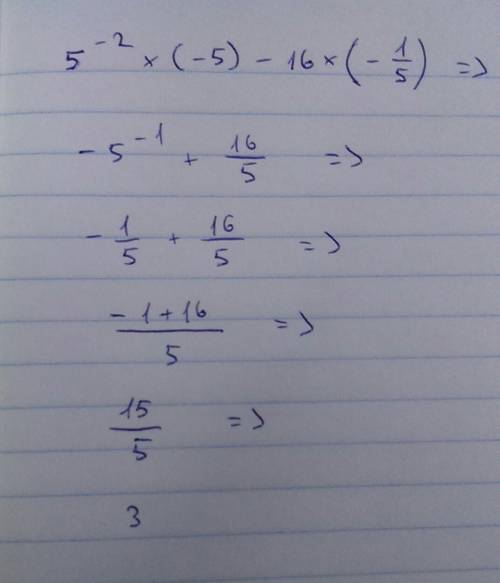 5⁻² × (-5) - 16 × (- 1/5) =>
- 5⁻¹ + 16/5 =>
- 1/5 + 16/5 =>
(-1+16)/5 =>
15/5 =>
3